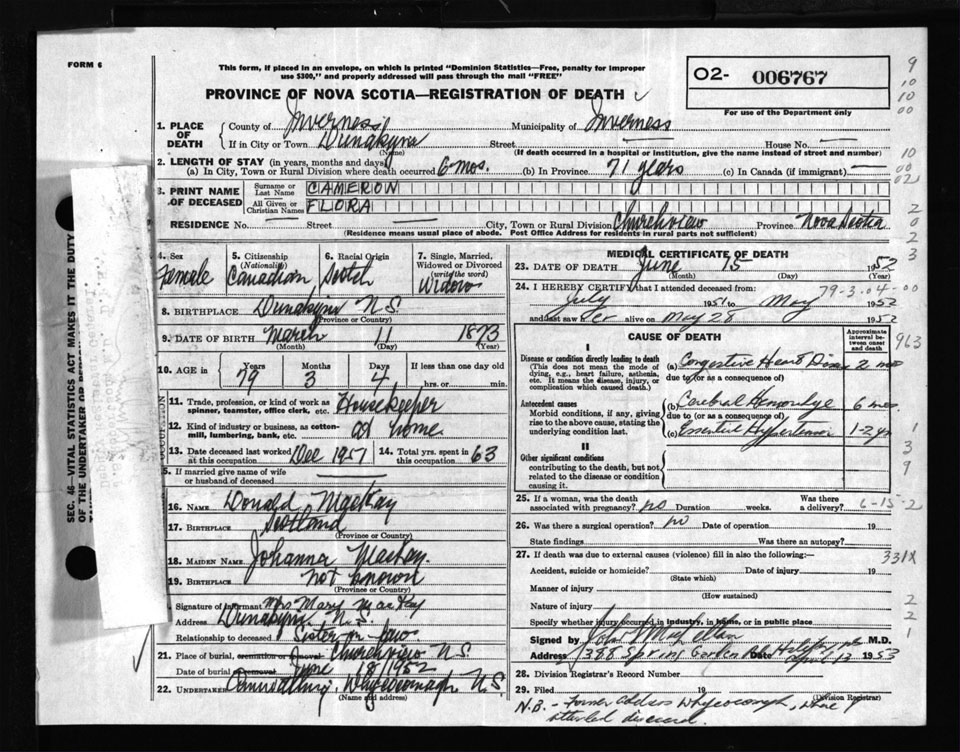 FORM 6
This form, if placed in an envelope, on which is printed "Dominion Statistics—Free, penalty for improper
use $300," and properly addressed will pass through the mail "FREE"
O2- 006767
For use of the Department only
PROVINCE OF NOVA SCOTIA—REGISTRATION OF DEATH
1. PLACE OF DEATH { County of Inverness Municipality of Inverness
If in City or Town Dunakyne Street House No.
(Name) (If death occurred in a hospital or institution, give the name instead of street and number)
2. LENGTH OF STAY (in years, months and days)
(a) In City, Town or Rural Division where death occurred 6 mos. (b) In Province 71 years (c) In Canada (if immigrant)
3. PRINT NAME OF DECEASED { Surname or Last Name CAMERON
All Given or Christian Names FLORA
RESIDENCE No. Street City, Town or Rural Division Churchview Province Nova Scotia
(Residence means usual place of abode. Post Office Address for residents in rural parts not sufficient)
4. Sex Female
5. Citizenship (Nationality) Canadian
6. Racial Origin Scotch
7. Single, Married, Widowed or Divorced (write the word) Widow
8. BIRTHPLACE Dunakyne N.S.
(Province or Country)
9. DATE OF BIRTH March 11 1873
(Month) (Day) (Year)
10. AGE in Years 79 Months 3 Days 4 If less than one day old
hrs. or min.
OCCUPATION
11. Trade, profession, or kind of work as
spinner, teamster, office clerk, etc. Housekeeper
12. Kind of industry or business, as cotton-
mill, lumbering, bank, etc. at home
13. Date deceased last worked at this occupation Dec 1951 14. Total yrs. spent in this occupation 63
5. If married give name of wife
or husband of deceased
16. NAME Donald MacKay
17. BIRTHPLACE Scotland
(Province or Country)
18. MAIDEN NAME Johanna MacKay.
19. BIRTHPLACE not known
(Province or Country)
Signature of Informant Mrs. Mary MacKay
Address Dunakyne. N.S.
Relationship to deceased Sister in law
21. Place of burial, cremation or removal Churchview N.S.
Date of burial June 18, 1952
22. UNDERTAKER Whycocomagh N.S.
(Name and address)
MEDICAL CERTIFICATE OF DEATH
23. DATE OF DEATH June 15 1952
(Month) (Day) (Year)
79-3-04-00
24. I HEREBY CERTIFY that I attended deceased from:
July 1951 to May 1952
and last saw her alive on May 28 1952
CAUSE OF DEATH
Approximate interval between onset and death
I
Disease or condition directly leading to death
(This does not mean the mode of
dying, e.g., heart failure, asthenia,
etc. It means the disease, injury, or
complication which caused death.)
(a) Congestive Heart 2 mos
due to (or as a consequence of)
Antecedent causes
Morbid conditions, if any, giving
rise to the above cause, stating the
underlying condition last.
(b) Cerebral Hemorrhge 6 mos.
due to (or as a consequence of)
(c) Essential Hypertension 1-2 yr
II
Other significant conditions
contributing to the death, but not
related to the disease or condition
causing it.
25. If a woman, was the death
associated with pregnancy? no Duration weeks. Was there a delivery? 6-15-2
26. Was there a surgical operation? no Date of operation 19
State findings Was there an autopsy?
27. If death was due to external causes (violence) fill in also the following:
331X
Accident, suicide or homicide? Date of injury 19
(State which)
Manner of injury
(How sustained)
Nature of injury
Specify whether injury occurred in industry, in home, or in public place
Signed by M.D.
Address 388 Spring Garden Rd Date April 13 1953
28. Division Registrar's Record Number
29. Filed 19
(Division Registrar)
N.B. - Former address Whycocomagh, where I
attended deceased.
SEC. 46—VITAL STATISTICS ACT MAKES IT THE DUTY
OF THE UNDERTAKER
9
10
10
00
10
00
02
2
0
2
3
963
1
3
9
2
2
1